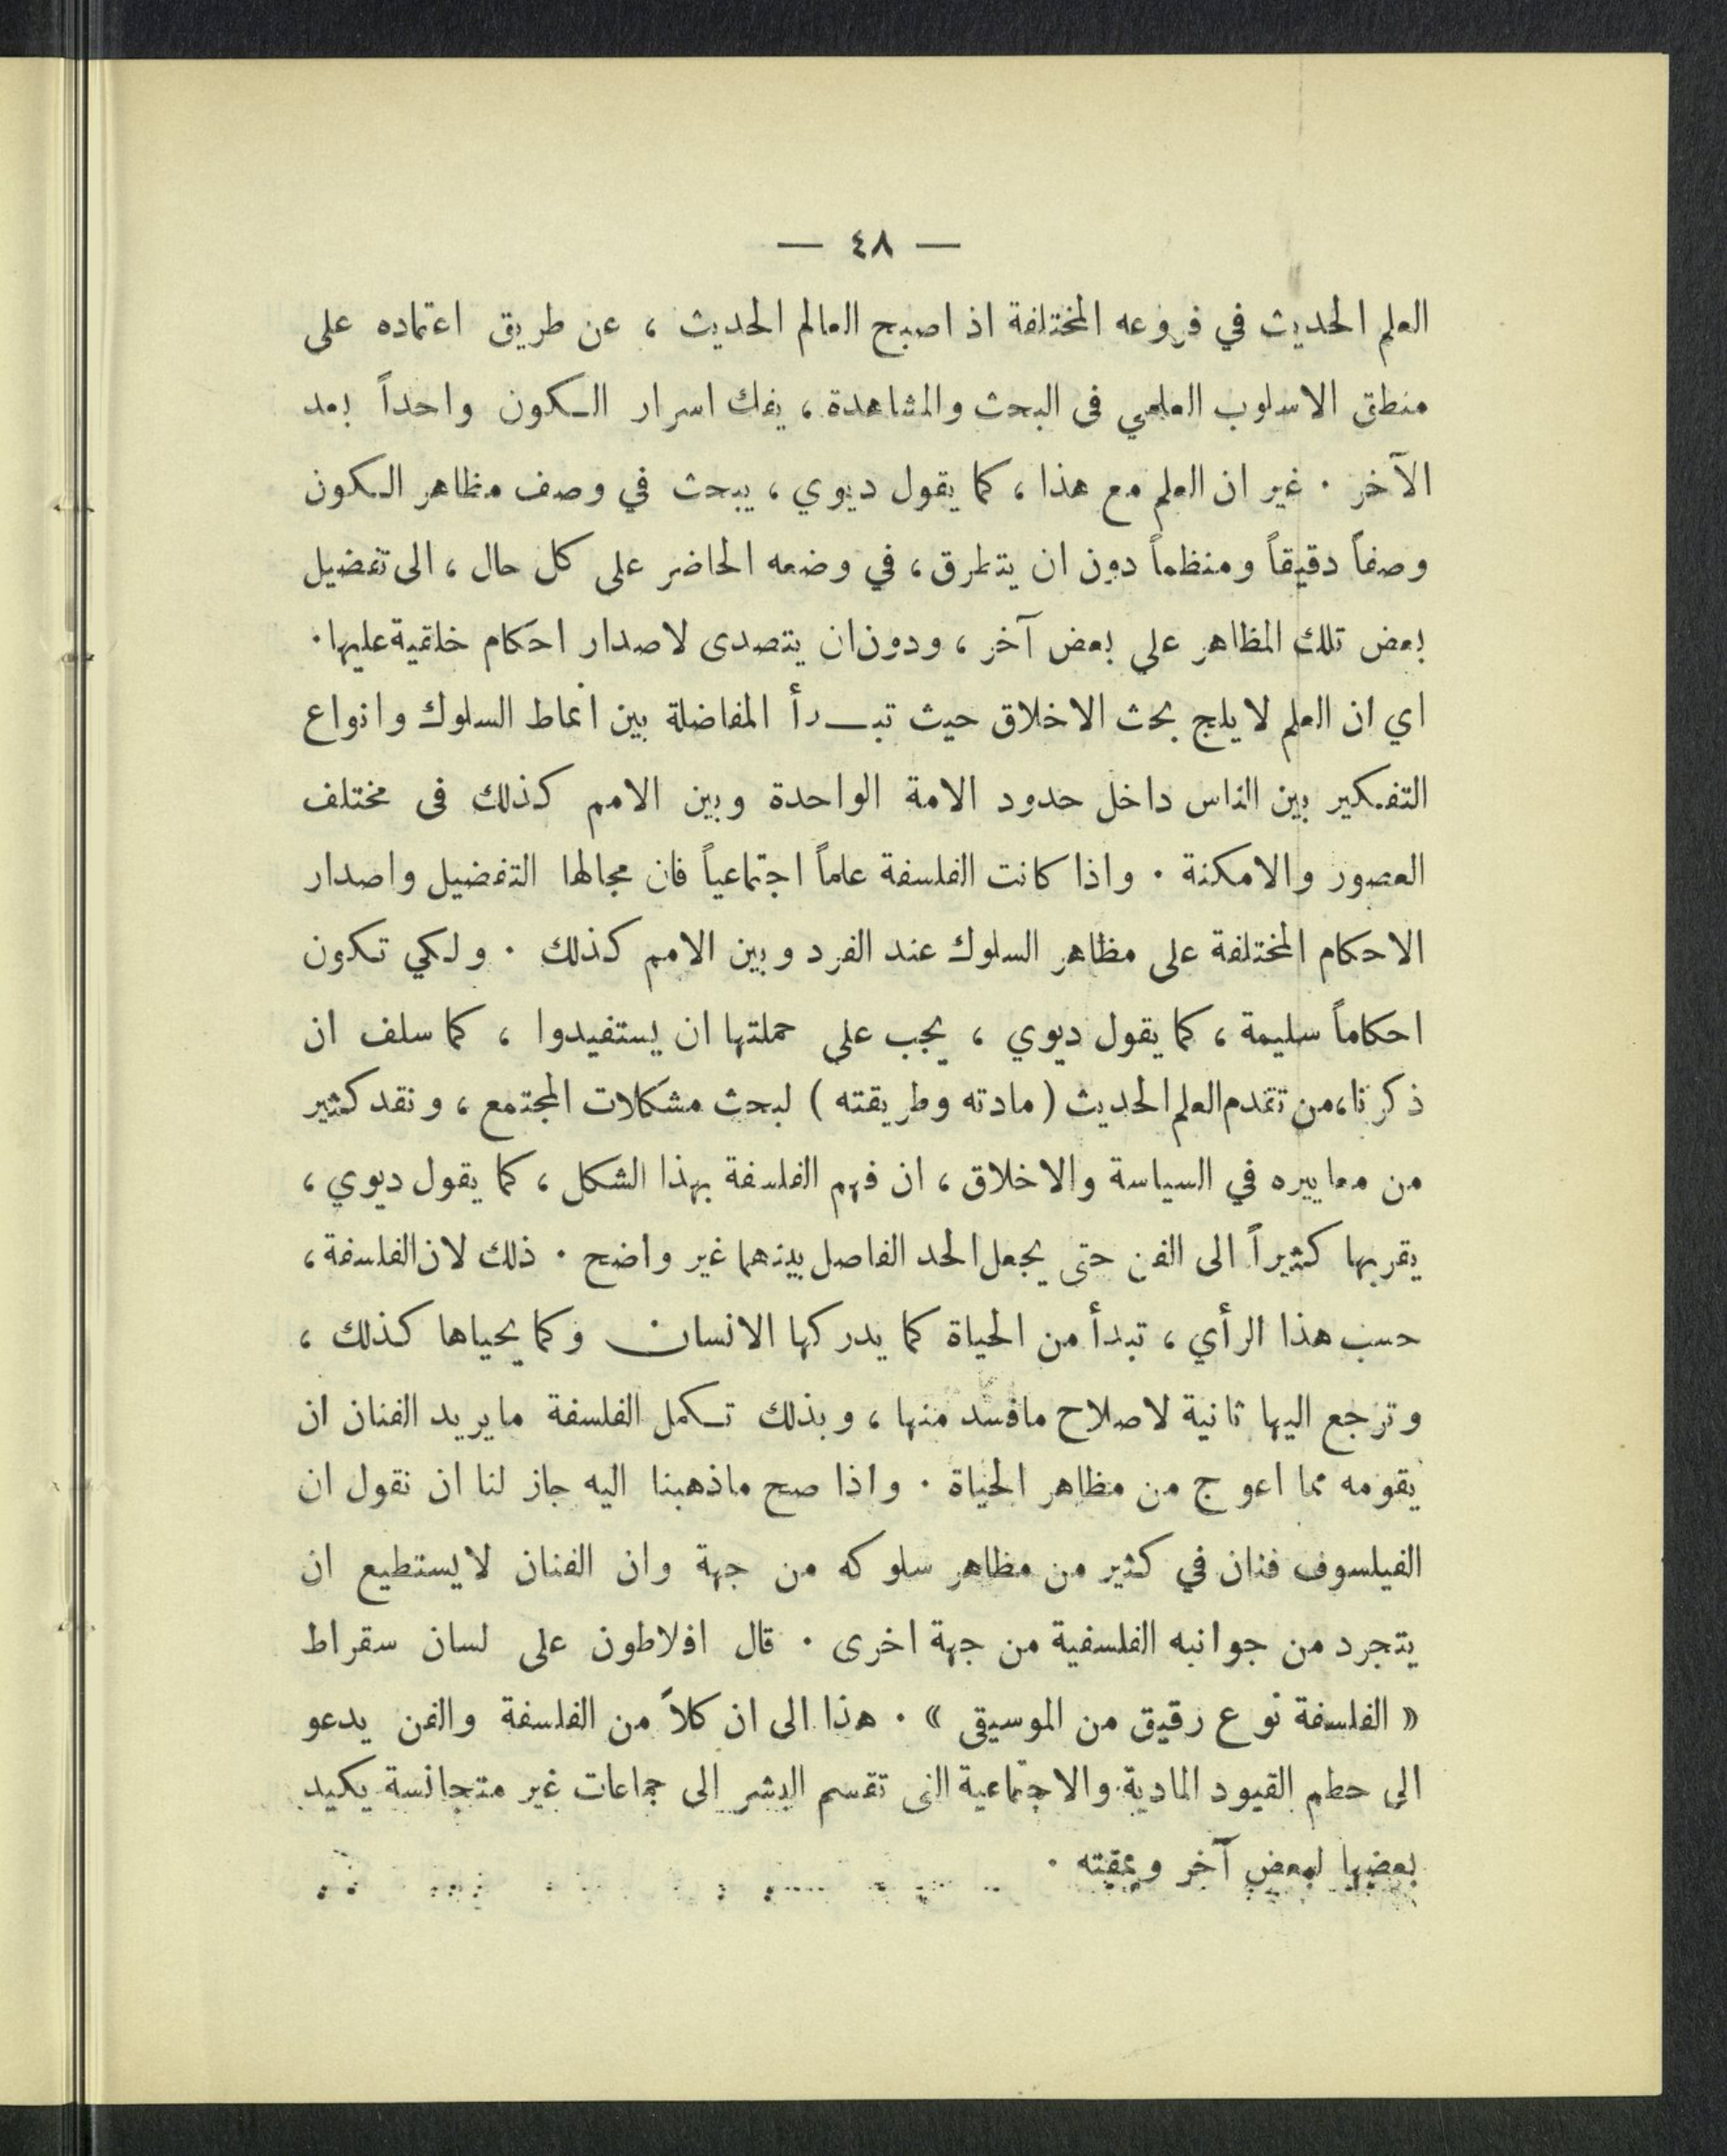 — ٤٨ —
العلم الحديث في فروعه المختلفة اذ اصبح العالم الحديث ، عن طريق اعتماده على
منطق الاسلوب العلمي فى البحث والمشاهدة ، يفك اسرار الكون واحداً بعد
الآخر . غير ان العلم مع هذا ، كما يقول ديوي ، يبحث في وصف مظاهر الكون
وصفاً دقيقاً ومنظماً دون ان يتطرق ، في وضعه الحاضر على كل حال ، الى تفضيل
بعض تلك المظاهر على بعض آخر ، ودون ان يتصدى لاصدار احكام خلقية عليها .
اي ان العلم لا يلج بحث الاخلاق حيث تبدأ المفاضلة بين انماط السلوك وانواع
التفكير بين الناس داخل حدود الامة الواحدة وبين الامم كذلك فى مختلف
العصور والامكنة . واذا كانت الفلسفة علماً اجتماعياً فان مجالها التفضيل واصدار
الاحكام المختلفة على مظاهر السلوك عند الفرد وبين الامم كذلك . ولكي تكون
احكاماً سليمة ، كما يقول ديوي ، يجب على حملتها ان يستفيدوا ، كما سلف ان
ذكرنا ، من تقدم العلم الحديث ( مادته وطريقته ) لبحث مشكلات المجتمع ، ونقد كثير
من معاييره في السياسة والاخلاق ، ان فهم الفلسفة بهذا الشكل ، كما يقول ديوي ،
يقربها كثيراً الى الفن حتى يجعل الحد الفاصل بينهما غير واضح . ذلك لان الفلسفة ،
حسب هذا الرأي ، تبدأ من الحياة كما يدركها الانسان وكما يحياها كذلك ،
وترجع اليها ثانية لاصلاح مافسد منها ، وبذلك تكمل الفلسفة ما يريد الفنان ان
يقومه مما اعوج من مظاهر الحياة . واذا صح ماذهبنا اليه جاز لنا ان نقول ان
الفيلسوف فنان في كثير من مظاهر سلوكه من جهة وان الفنان لا يستطيع ان
يتجرد من جوانبه الفلسفية من جهة اخرى . قال افلاطون على لسان سقراط
« الفلسفة نوع رقيق من الموسيقى » . هذا الى ان كلاً من الفلسفة والفن يدعو
الى حطم القيود المادية والاجتماعية التى تقسم البشر الى جماعات غير متجانسة يكيد
بعضها لبعض آخر ويمقته .